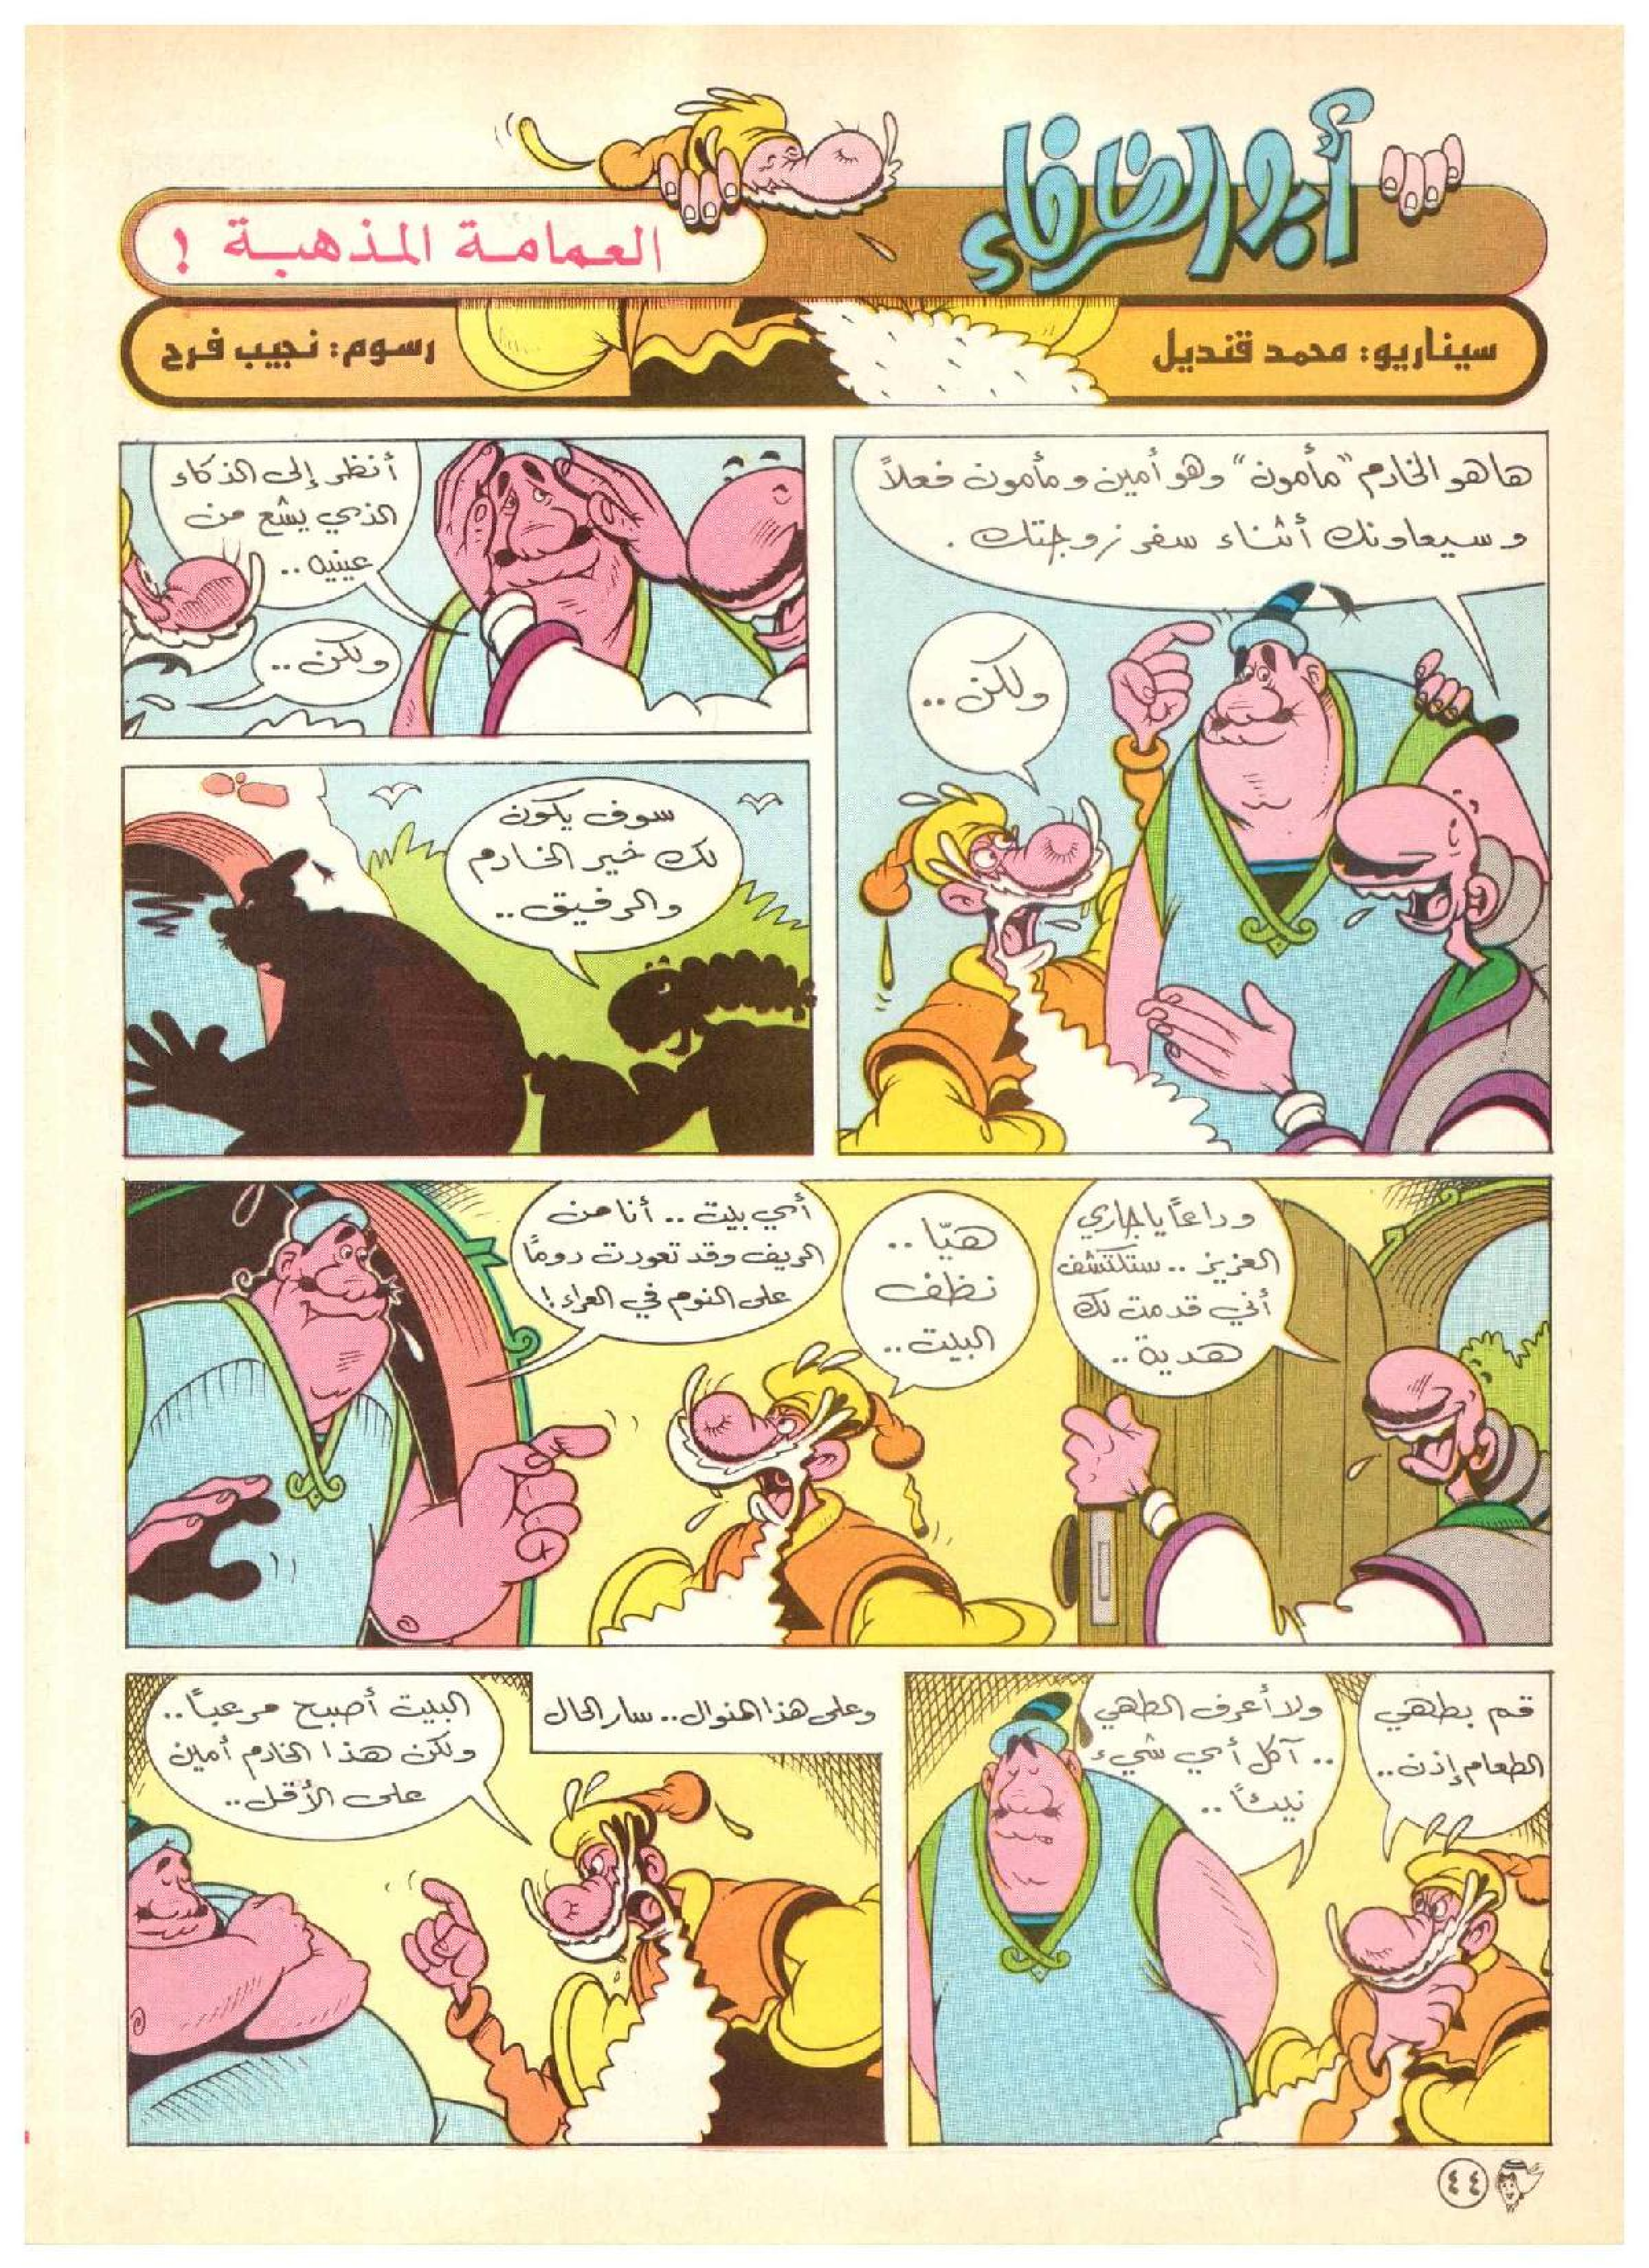 أبو الظرفاء
العمامة المذهبة !
سيناريو: محمد قنديل
رسوم: نجيب فرح
ها هو الخادم "مأمون" وهو أمين ومأمون فعلاً
وسيعاونك أثناء سفر زوجتك .
ولكن ..
أنظر إلى الذكاء
الذي يشع من
عينيه ..
ولكن ..
سوف يكون
لك خير الخادم
والرفيق ..
وداعاً يا جاري
العزيز .. ستكتشف
أني قدمت لك
هدية ..
هيّا ..
نظف
البيت ..
أي بيت .. أنا من
الريف وقد تعودت دوماً
على النوم في العراء !
قم بطهي
الطعام إذن ..
ولا أعرف الطهي
.. آكل أي شيء
نيئاً ..
وعلى هذا المنوال .. سار الحال
البيت أصبح مرعباً ..
ولكن هذا الخادم أمين
على الأقل ..
٤٤